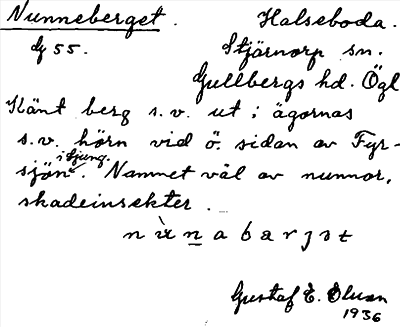 Nunneberget. Halseboda.
Lf 55. Stjärnorp sn.
Gullbergs hd. Ögl
Känt berg s.v. ut i ägornas
s.v. hörn vid ö. sidan av Fyr-
i Ljung.
sjön. Namnet väl av nunnor,
skadeinsekter.
Gustaf E.
1936